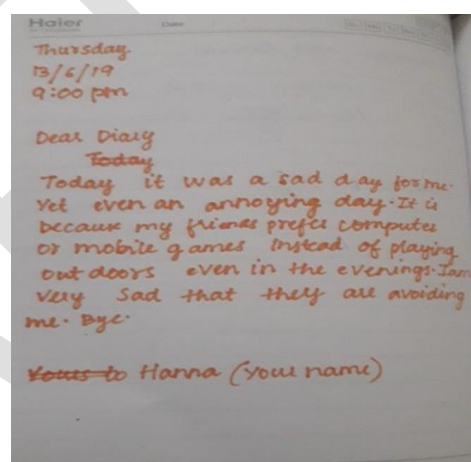 Haier
Date
Thursday.
13/6/19
9:00 pm
Dear Diary
Today
Today it was a sad day for me.
Yet even an annoying day. It is
because my friends prefer computer
or mobile games instead of playing
out doors even in the evenings. I am
very sad that they are avoiding
me. Bye.
Yours to Hanna (your name)